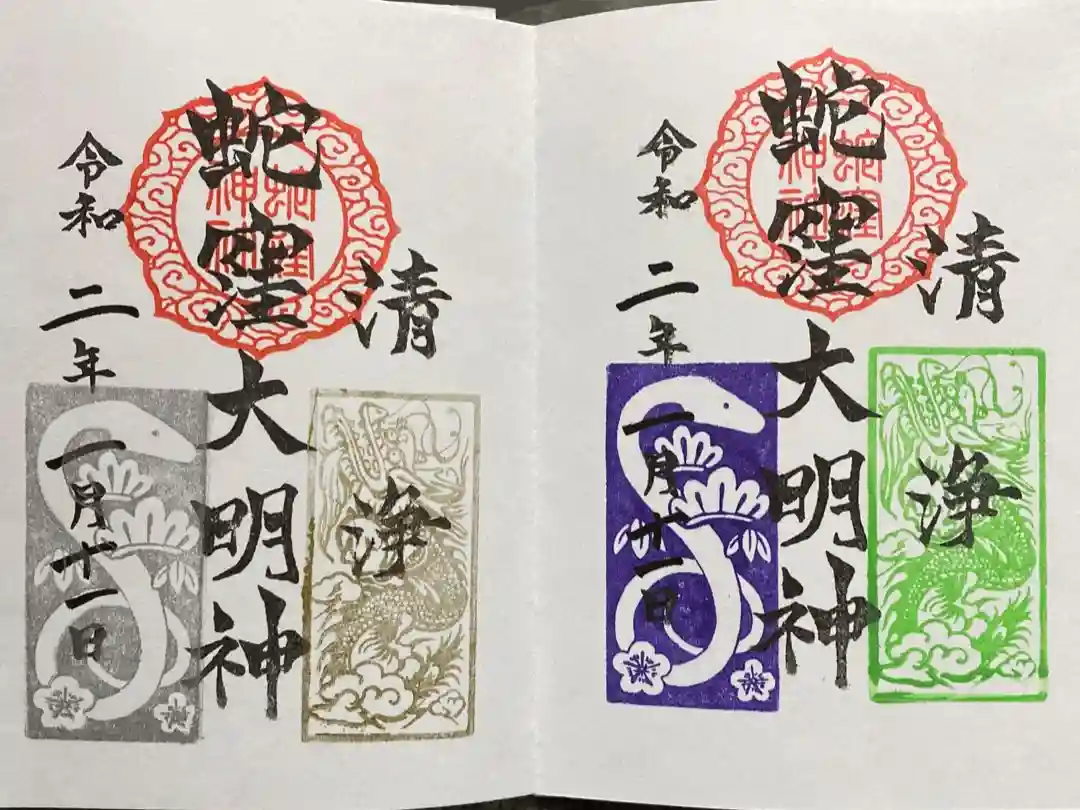 清
浄
蛇窪大明神
蛇窪
神社
令和二年一月十一日
清
浄
蛇窪大明神
蛇窪
神社
令和二年一月十一日